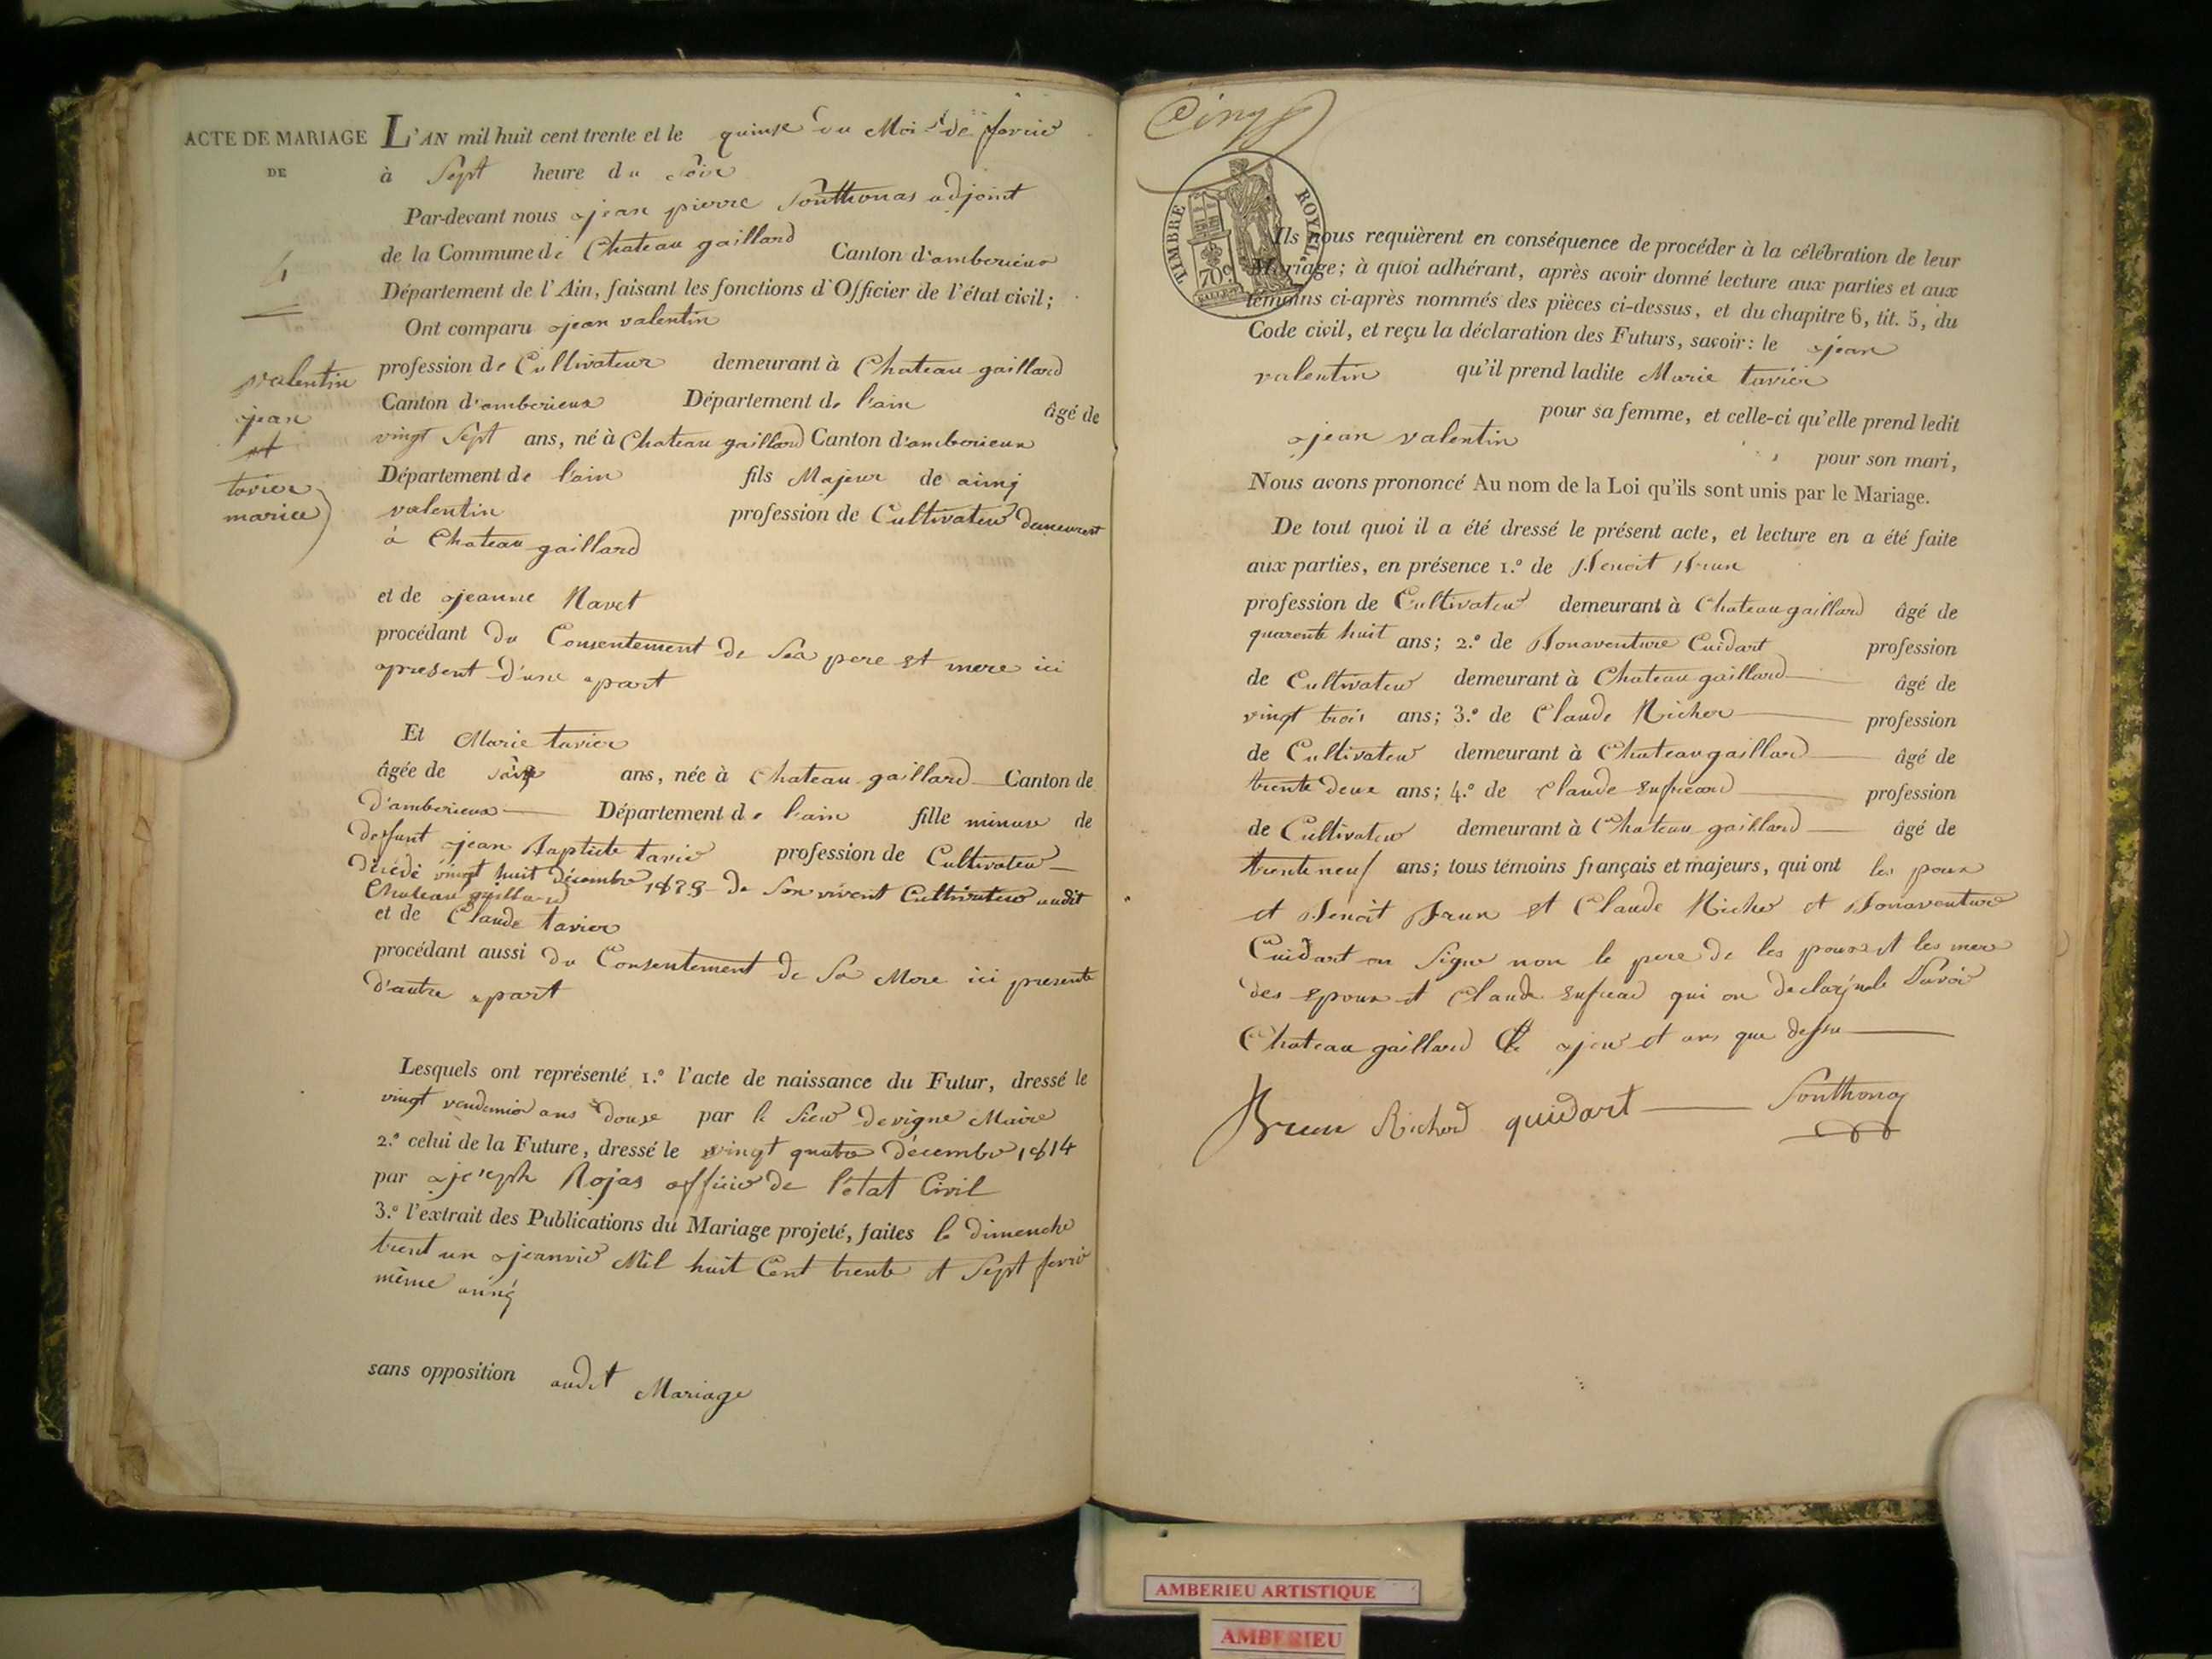 ACTE DE MARIAGE
DE
4
valentin
jean
et
tavier
marie
L'AN mil huit cent trente et le quinse du Moi de fevrié
à Sept heure du Soir
Par-devant nous jean pierre Sonthonas adjoint
de la Commune de Chateau gaillard Canton d'amberieux
Département de l'Ain, faisant les fonctions d'Officier de l'état civil;
Ont comparu jean valentin
profession de Cultivateur demeurant à Chateau gaillard
Canton d'amberieux Département de l'ain âgé de
vingt Sept ans, né à Chateau gaillard Canton d'amberieux
Département de l'ain fils Majeur de aimé
valentin profession de Cultivateur demeurant
à Chateau gaillard
et de jeanne Navet
procédant du Consentement de Sea pere et mere ici
present d'une part
Et Marie tavier
âgée de ans, née à Chateau gaillard Canton de
d'amberieux Département de l'ain fille mineure de
deffunt jean Baptiste tavié profession de Cultivateur
décédé vingt huit décembre 1829 de Son vivent Cultivateur audit
Chateau gaillard
et de Claude tavier
procédant aussi du Consentement de Sa Mere ici presente
d'autre part
Lesquels ont représenté 1.º l'acte de naissance du Futur, dressé le
vingt vendemier ans douse par le Sieur devigne Maire
2.º celui de la Future, dressé le vingt quatre décembre 1814
par joseph Rojas officié de l'état Civil
3.º l'extrait des Publications du Mariage projeté, faites le dimenche
trent un jeanvié Mil huit Cent trente et Sept fevrié
même anné
sans opposition audit Mariage
Cinq
TIMBRE ROYAL
70c
Ils nous requièrent en conséquence de procéder à la célébration de leur
Mariage; à quoi adhérant, après avoir donné lecture aux parties et aux
témoins ci-après nommés des pièces ci-dessus, et du chapitre 6, tit. 5, du
Code civil, et reçu la déclaration des Futurs, savoir: le jean
valentin qu'il prend ladite Marie tavier
pour sa femme, et celle-ci qu'elle prend ledit
jean valentin pour son mari,
Nous avons prononcé Au nom de la Loi qu'ils sont unis par le Mariage.
De tout quoi il a été dressé le présent acte, et lecture en a été faite
aux parties, en présence 1.º de Benoit Brun
profession de Cultivateur demeurant à Chateau gaillard âgé de
quarente huit ans; 2.º de Bonaventure Cuidart profession
de Cultivateur demeurant à Chateau gaillard âgé de
vingt trois ans; 3.º de Claude Richer profession
de Cultivateur demeurant à Chateau gaillard âgé de
trente deux ans; 4.º de Claude profession
de Cultivateur demeurant à Chateau gaillard âgé de
trente neuf ans; tous témoins français et majeurs, qui ont les poux
et Benoit Brun et Claude Richer et Bonaventure
Cuidart on Signe non le pere de les poux et les mere
des epoux et Claude qui on Savoir
Chateau gaillard le jour et ans que dessu
Brun Richerd quidart Sonthonas
AMBERIEU ARTISTIQUE
AMBERIEU